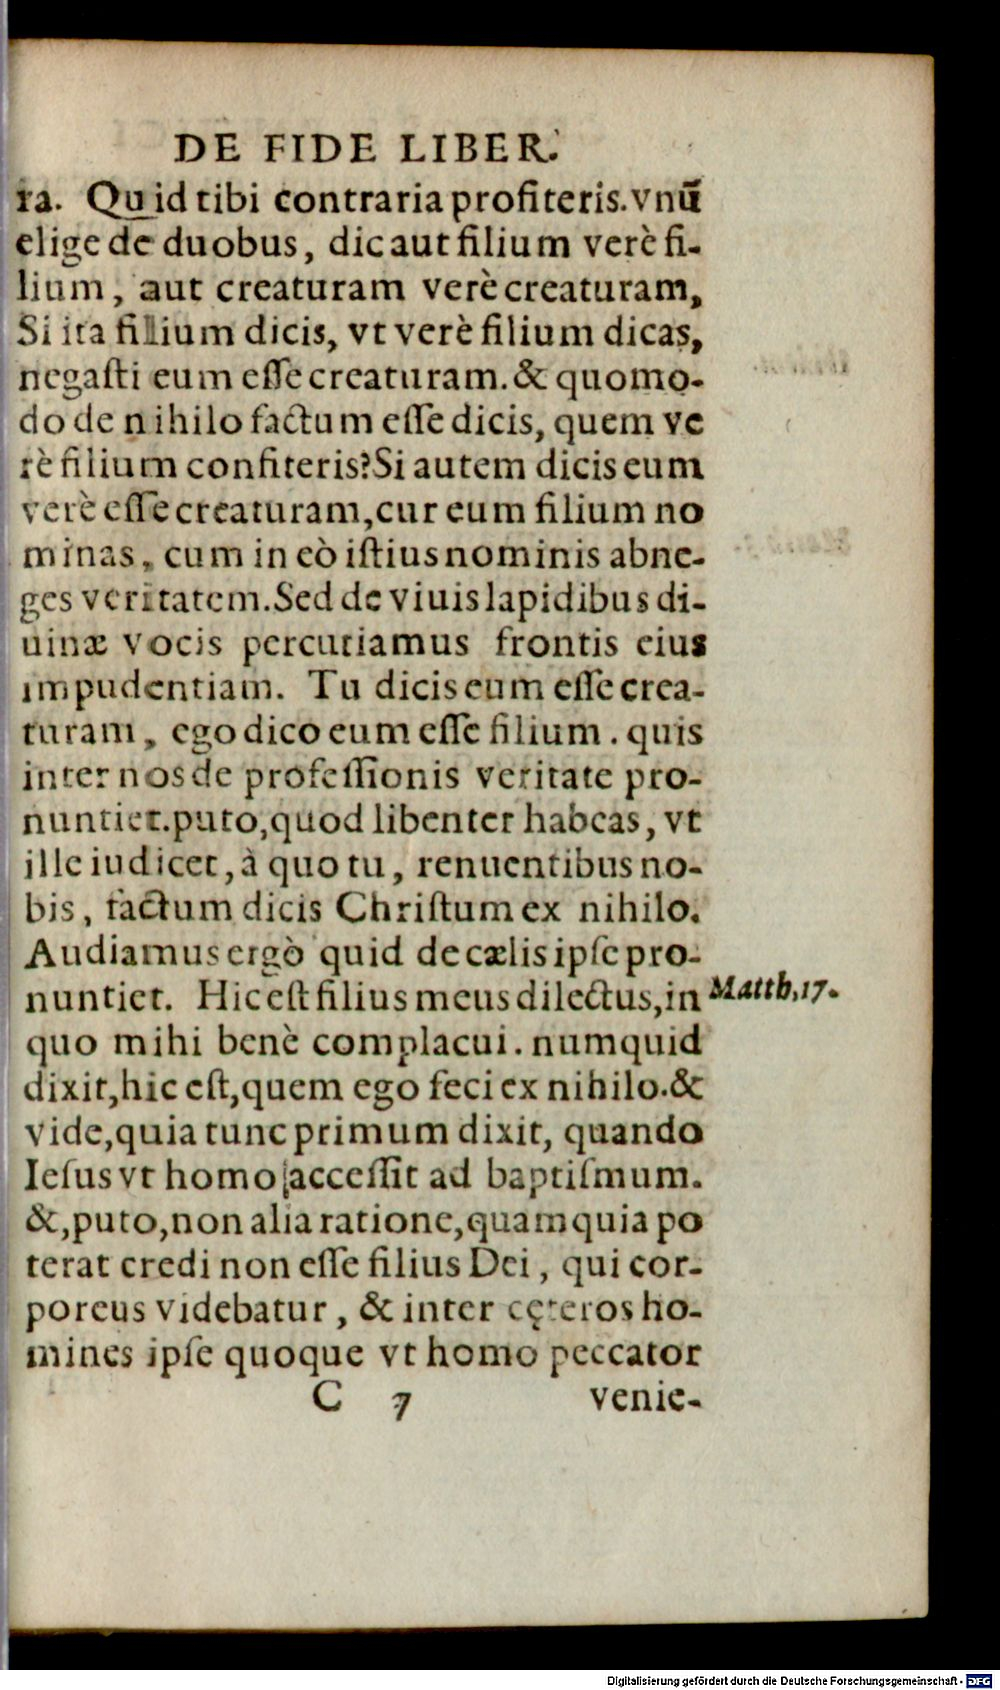 DE FIDE LIBER.
ra. Quid tibi contraria profiteris. vnū
elige de duobus, dic aut filium verè fi-
lium, aut creaturam verè creaturam,
Si ita filium dicis, vt verè filium dicas,
negaſti eum eſſe creaturam. & quomo-
do de nihilo factum eſſe dicis, quem ve
rè filium confiteris? Si autem dicis eum
verè eſſe creaturam, cur eum filium no
minas, cum in eò iſtius nominis abne-
ges veritatem. Sed de viuis lapidibus di-
uinæ vocis percutiamus frontis eius
impudentiam. Tu dicis eum eſſe crea-
turam, ego dico eum eſſe filium. quis
inter nos de profeſſionis veritate pro-
nuntiet. puto, quod libenter habeas, vt
ille iudicet, à quo tu, renuentibus no-
bis, factum dicis Chriſtum ex nihilo.
Audiamus ergò quid de cælis ipſe pro-
nuntiet. Hic eſt filius meus dilectus, in
Matth. 17.
quo mihi benè complacui. numquid
dixit, hic eſt, quem ego feci ex nihilo. &
vide, quia tunc primum dixit, quando
Ieſus vt homo acceſſit ad baptiſmum.
&, puto, non alia ratione, quam quia po
terat credi non eſſe filius Dei, qui cor-
poreus videbatur, & inter cęteros ho-
mines ipſe quoque vt homo peccator
C 7 venie-
Digitalisierung gefördert durch die Deutsche Forschungsgemeinschaft - DFG